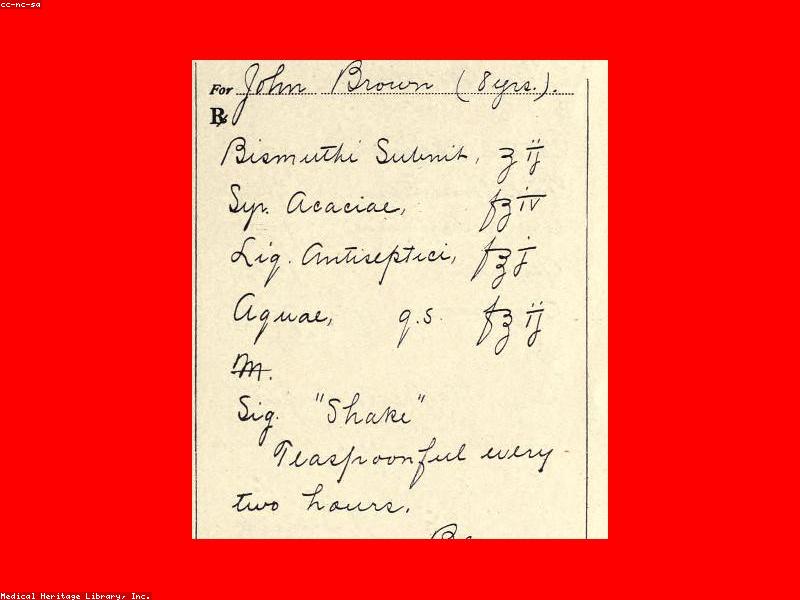 cc-nc-sa
For John Brown (8 yrs.).
℞
Bismuthi Subnit, ʒ ij
Syr. Acaciae, fʒ iv
Liq. Antiseptici, f℥ j
Aquae, q.s. f℥ ij
M.
Sig. "Shake"
Teaspoonful every
two hours.
Medical Heritage Library, Inc.